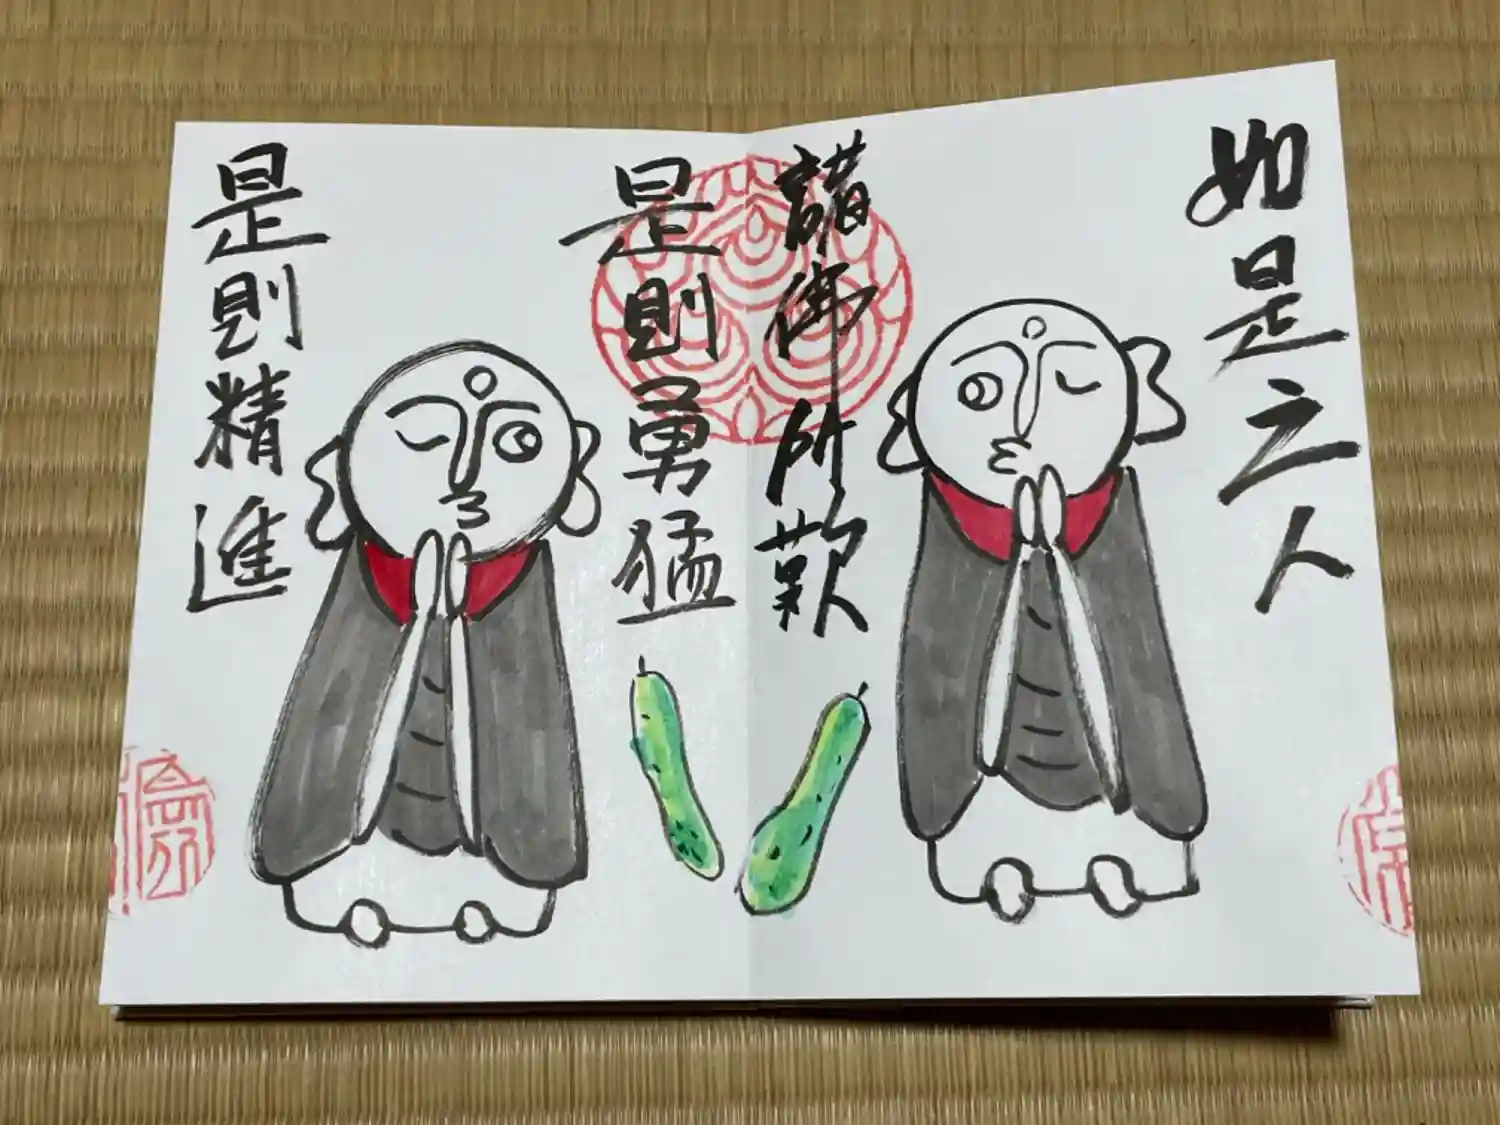 如是之人
諸佛所歎
是則勇猛
是則精進